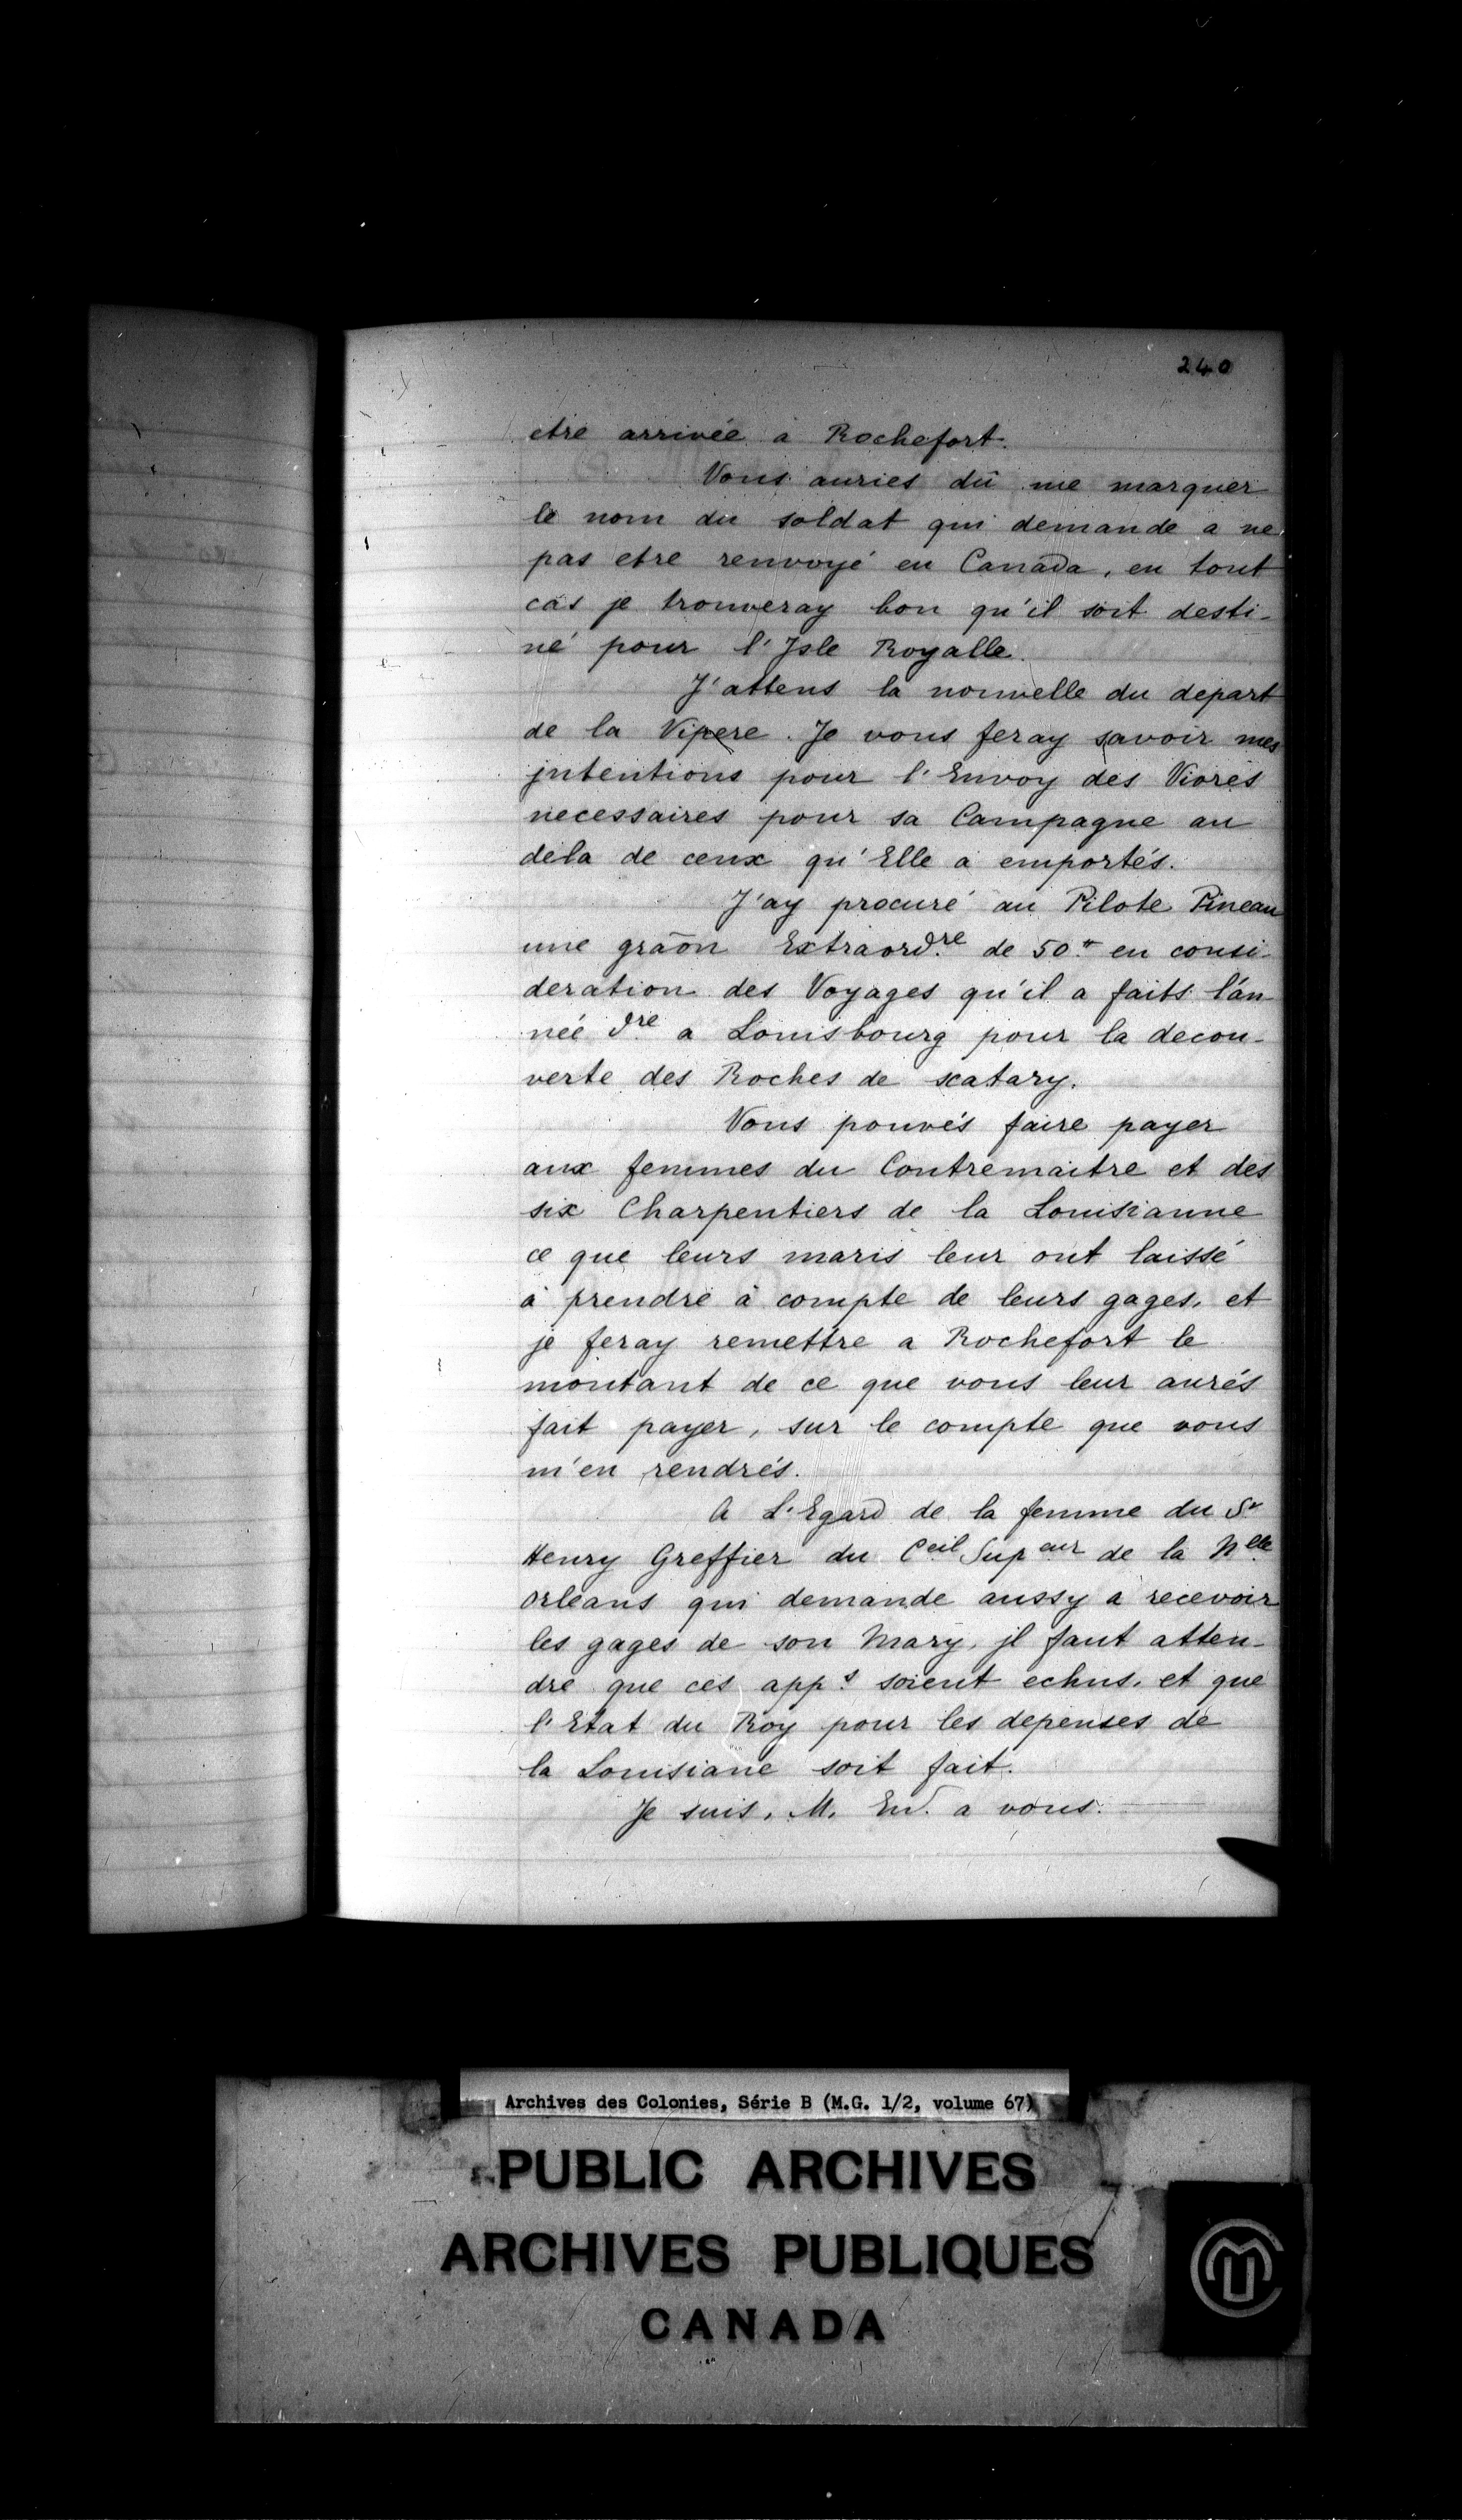 240
etre arrivée a Rochefort.
Vous auries dû me marquer
le nom du soldat qui demande a ne
pas etre renvoyé en Canada, en tout
cas je trouveray bon qu'il soit desti-
né pour l'Isle Royalle.
J'attens la nouvelle du depart
de la Vipere. Je vous feray savoir mes
jntentions pour l'Envoy des Vivres
necessaires pour sa Campagne au
dela de ceux qu'Elle a emportés.
J'ay procuré au Pilote Pineau
une graōn Extraord.re de 50.tt en consi-
deration des Voyages qu'il a faits l'an-
née d.re a Louisbourg pour la decou-
verte des Roches de scatary.
Vous pouvés faire payer
aux femmes du Contremaitre et des
six Charpentiers de la Louisianne
ce que leurs maris leur ont laissé
à prendre à compte de leurs gages, et
je feray remettre a Rochefort le
montant de ce que vous leur aurés
fait payer, sur le compte que vous
m'en rendrés.
A L'Egard de la femme du Sr
Henry Greffier du Ceil Supeur de la Nlle
orleans qui demande aussy a recevoir
les gages de son Mary, jl faut atten-
dre que ces app.s soient echus, et que
l'Etat du Roy pour les depenses de
la Louisiane soit fait.
Je suis, M. End. a vous.
Archives des Colonies, Série B (M.G. 1/2, volume 67)
PUBLIC ARCHIVES
ARCHIVES PUBLIQUES
CANADA